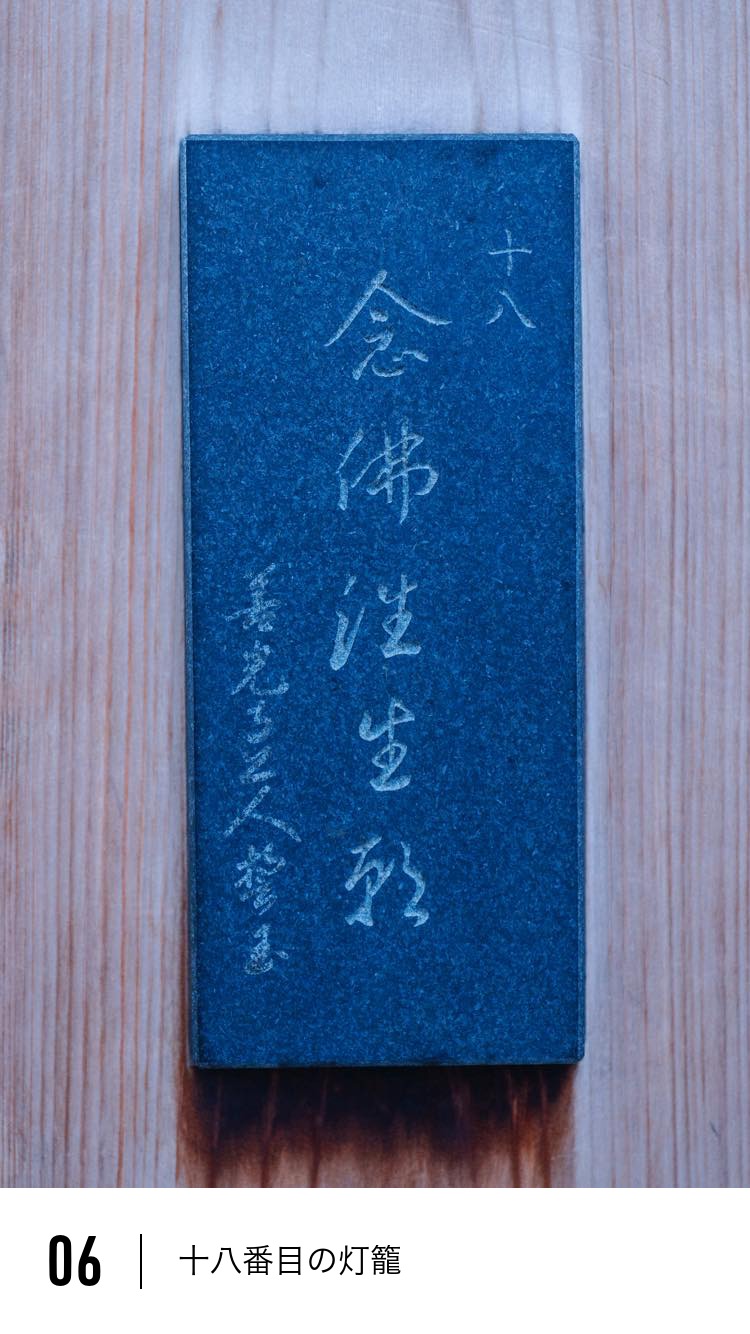 十八
念佛往生願
善光寺上人誓玉
06
十八番目の灯籠